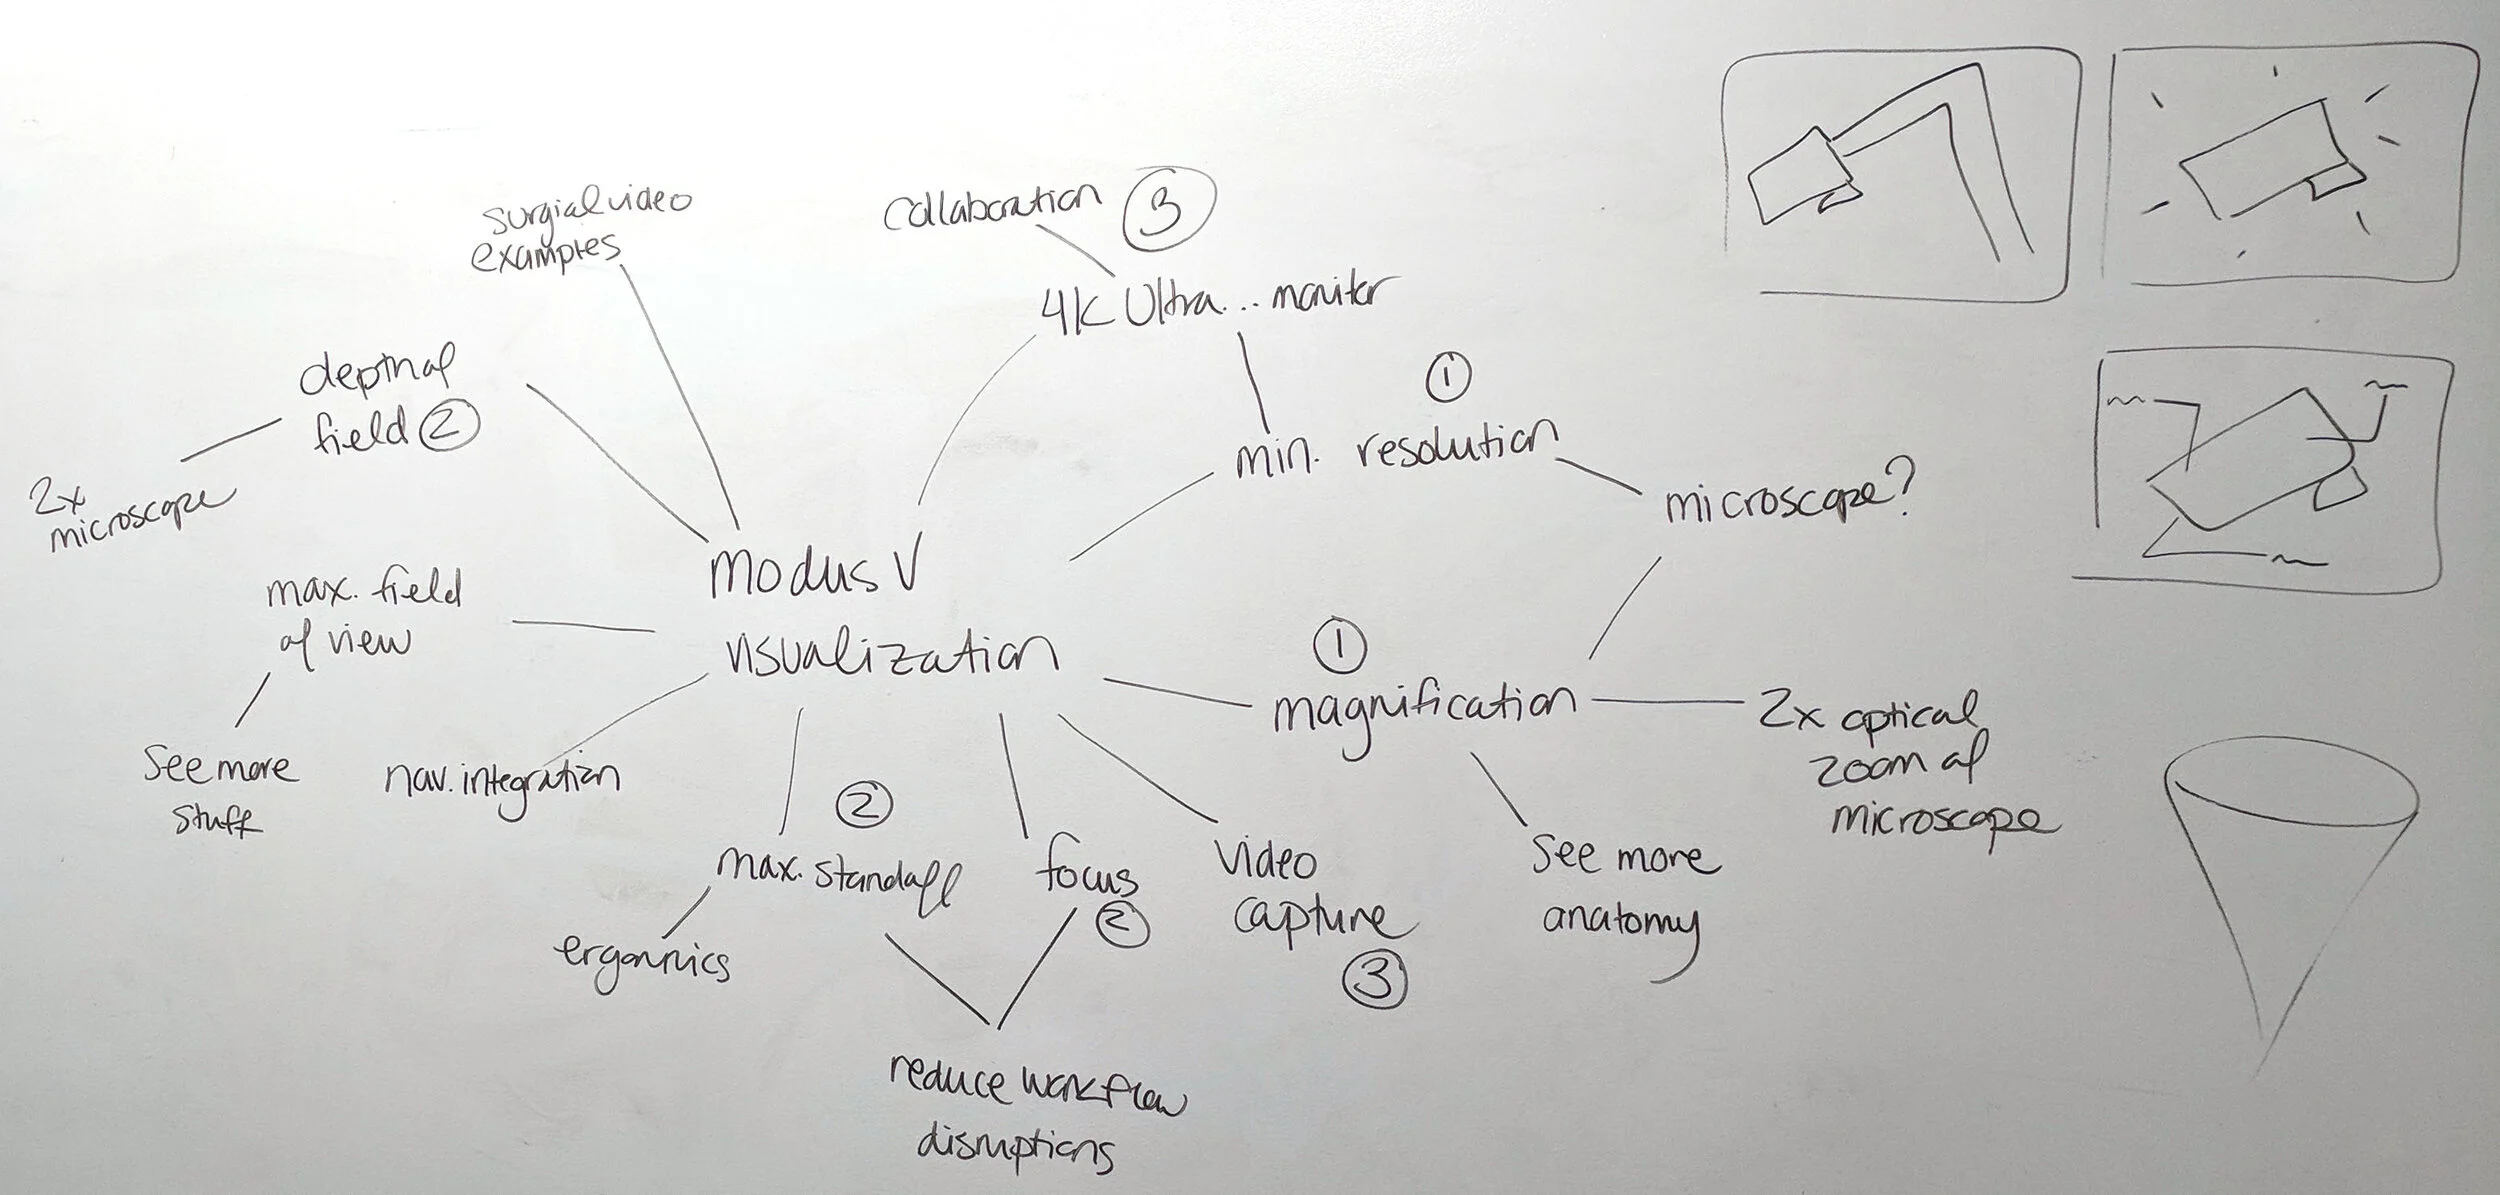 surgial video
examples
collaboration ③
4K Ultra... monitor
①
min. resolution
microscope?
depth of
field ②
2x
microscope
Modus V
visualization
max. field
of view
see more
stuff
nav. integration
①
magnification
2x optical
zoom of
microscope
see more
anatomy
②
max. standoff
ergonmics
focus
②
video
capture
③
reduce workflow
disruptions